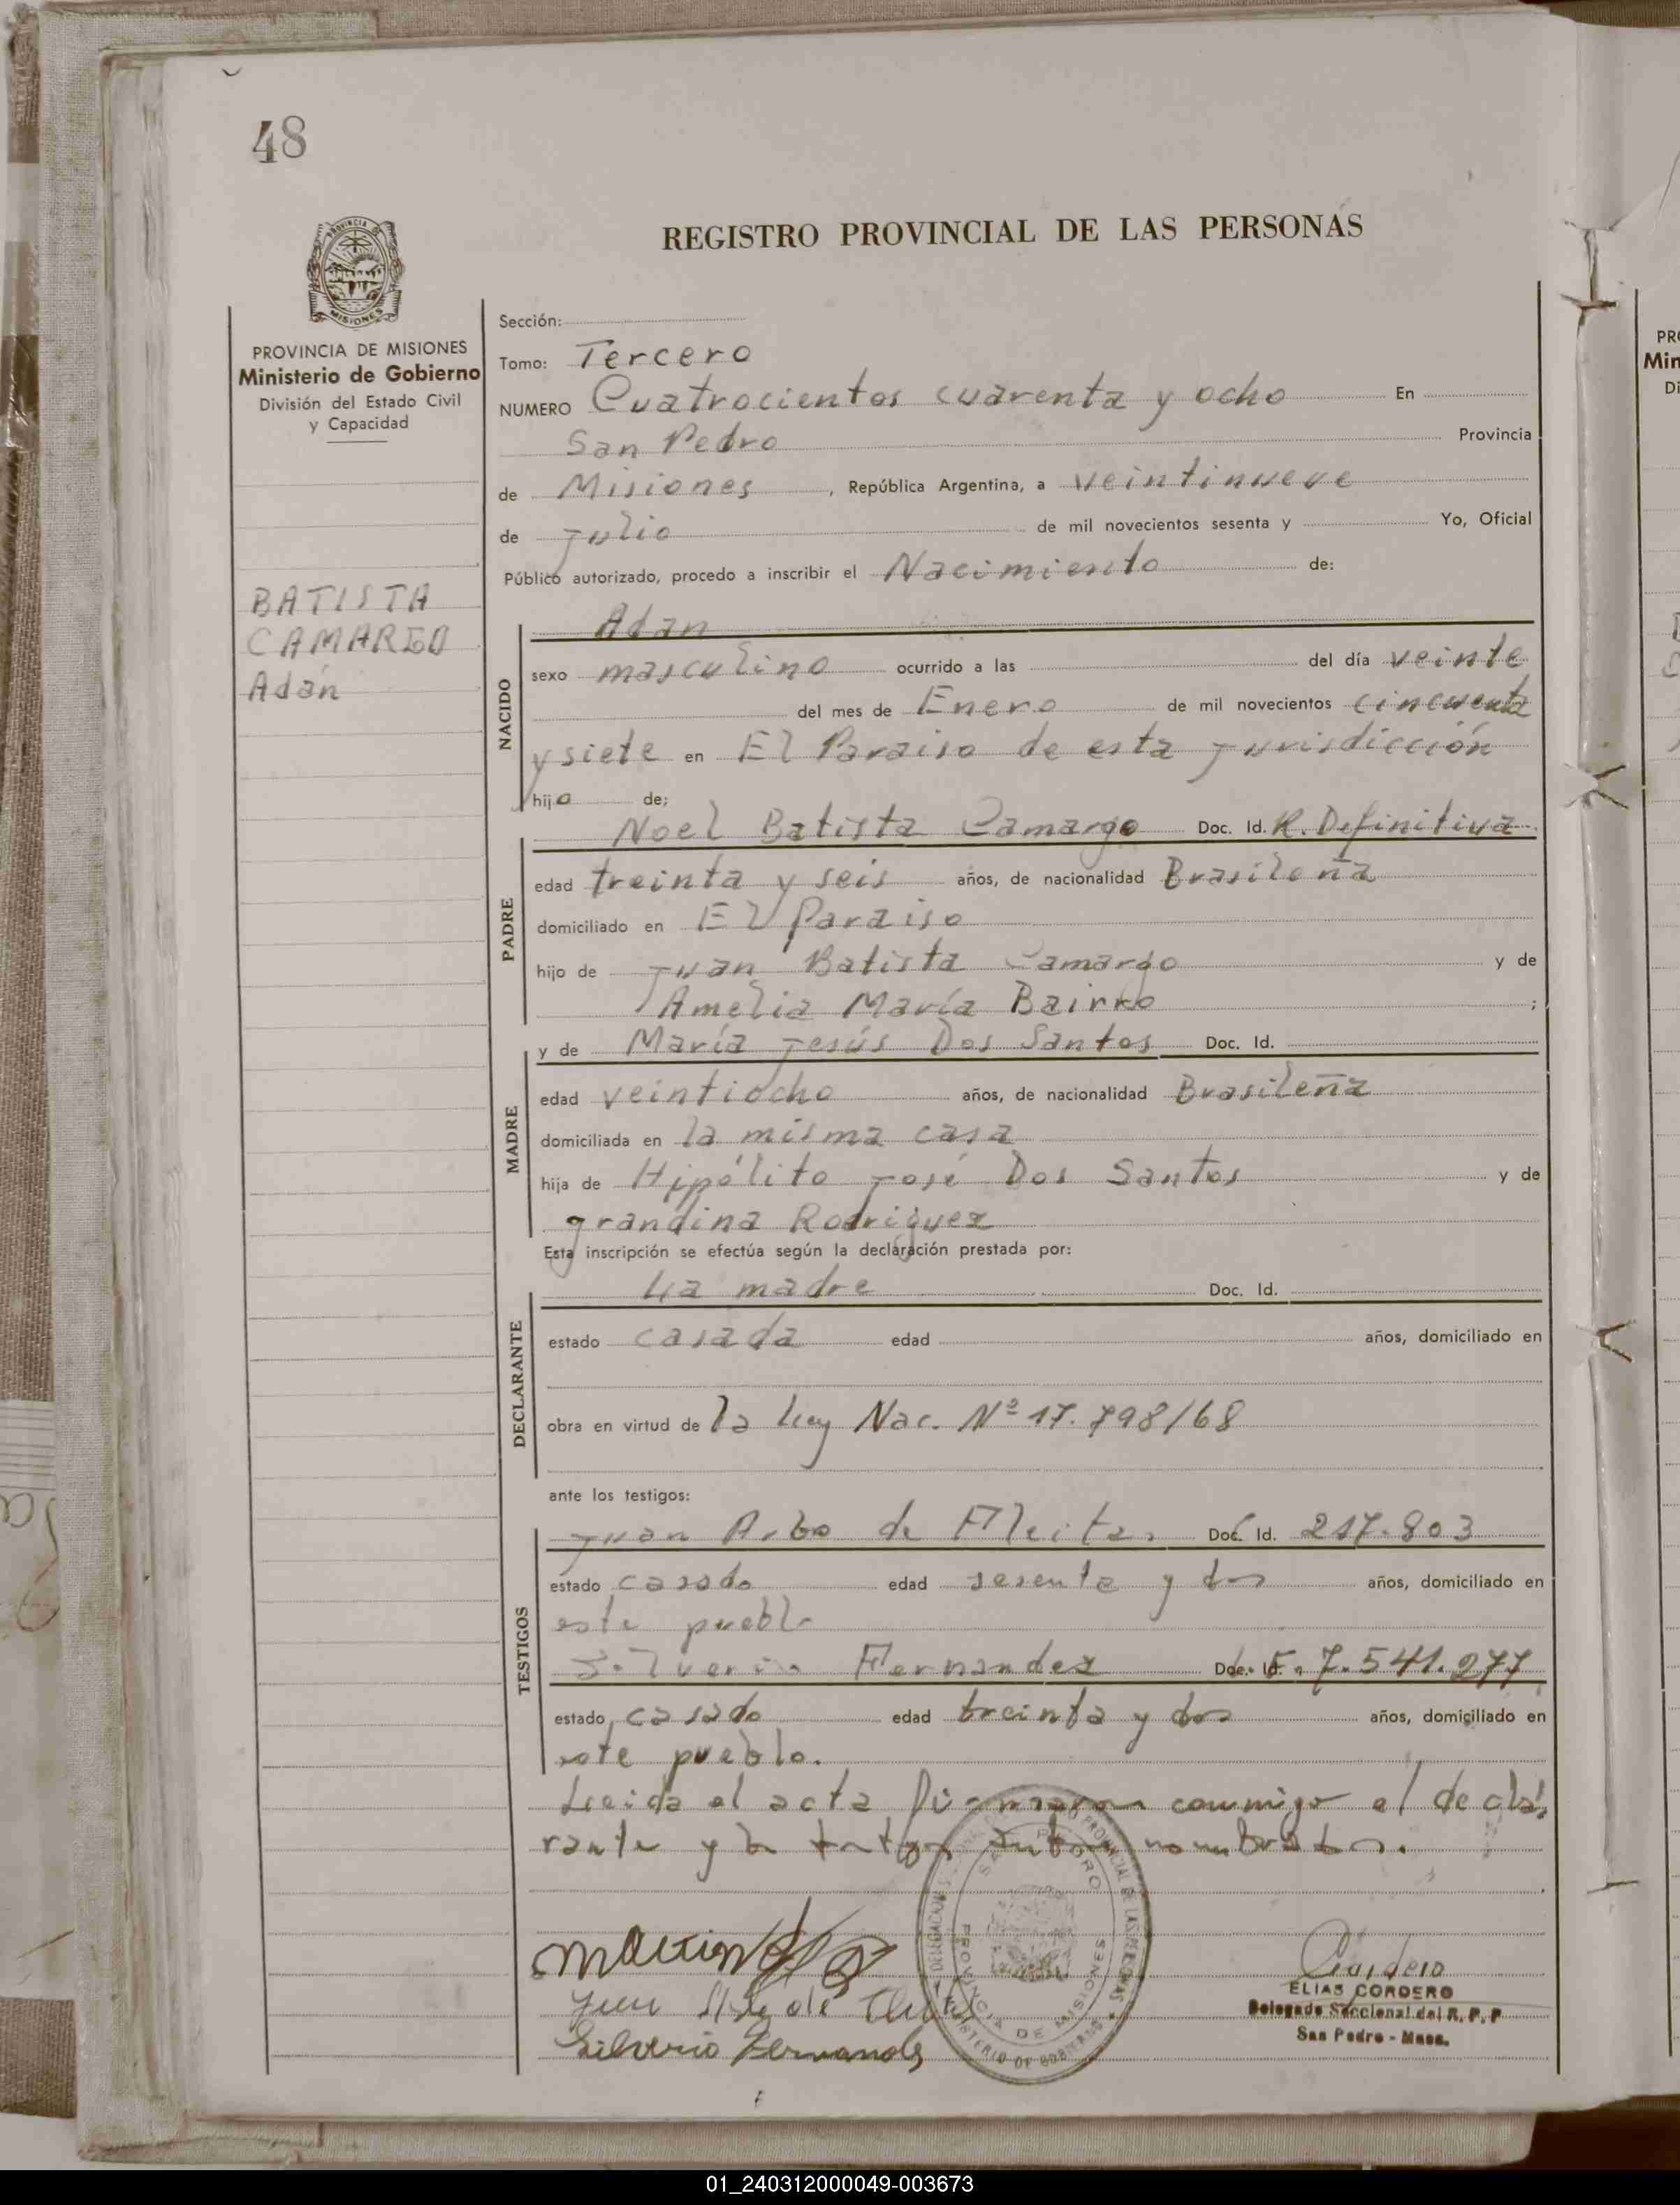 48
REGISTRO PROVINCIAL DE LAS PERSONAS
PROVINCIA DE MISIONES
Ministerio de Gobierno
División del Estado Civil
y Capacidad
BATISTA
CAMARGO
Adán
Sección:
Tomo: Tercero
NUMERO Cuatrocientos cuarenta y ocho En
San Pedro Provincia
de Misiones, República Argentina, a veintinueve
de Julio de mil novecientos sesenta y Yo, Oficial
Público autorizado, procedo a inscribir el Nacimiento de:
Adan
NACIDO
sexo masculino ocurrido a las del día veinte
del mes de Enero de mil novecientos cincuenta
y siete en El Paraiso de esta Jurisdicción
hijo de;
Noel Batista Camargo Doc. Id. R. Definitiva
PADRE
edad treinta y seis años, de nacionalidad Brasileña
domiciliado en El Paraiso
hijo de Juan Batista Camargo y de
Amelia María Bairro ;
y de María Jesús Dos Santos Doc. Id.
MADRE
edad veintiocho años, de nacionalidad Brasileña
domiciliada en la misma casa
hija de Hipólito José Dos Santos y de
grandina Rodriguez
Esta inscripción se efectúa según la declaración prestada por:
La madre Doc. Id.
DECLARANTE
estado casada edad años, domiciliado en
obra en virtud de la Ley Nac. Nº 17.798/68
ante los testigos:
Juan Arbo de Fleitas Doc. Id. 217.803
TESTIGOS
estado casado edad sesenta y dos años, domiciliado en
este pueblo
Silverio Fernandez Doc. Id. 7.541.277
estado casado edad treinta y dos años, domiciliado en
este pueblo.
Leida el acta firmaron conmigo el decla-
rante y los testigos antes nombrados.
Silverio Fernandez
Cordero
ELIAS CORDERO
Delegado Seccional del R. P. P
San Pedro - Mnes.
SAN PEDRO
PROVINCIA DE MISIONES
01_240312000049-003673